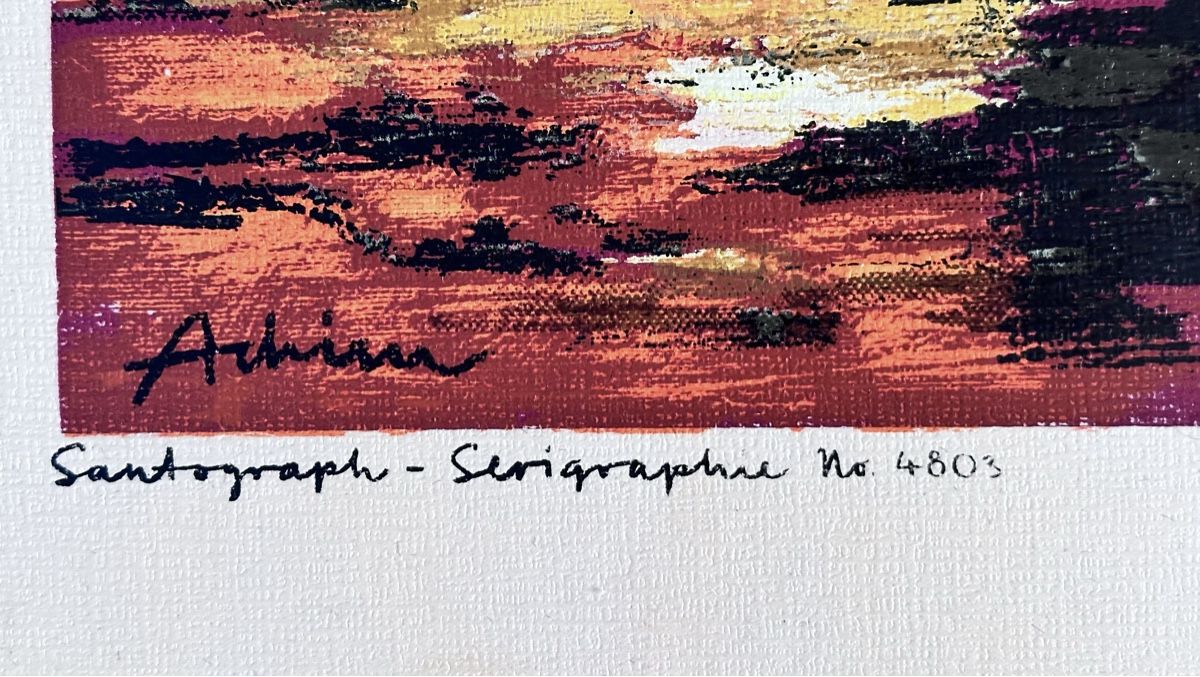 Achim
Santograph - Serigraphie No. 4803